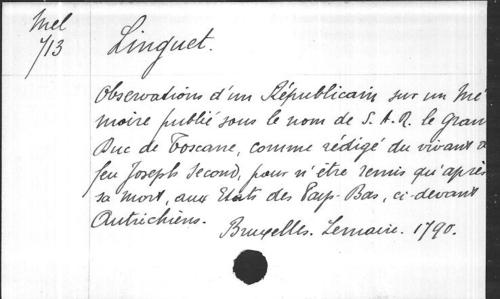 Mel
713
Linguet.
Observations d'un Républicain sur un Mé-
moire publié sous le nom de S. A. R. le Gran
Duc de Toscane, comme rédigé du vivant d
feu Joseph second, pour n'être remis qu'après
sa mort, aux Etats des Pays-Bas, ci-devant
Autrichiens.
Bruxelles. Lemaire. 1790.